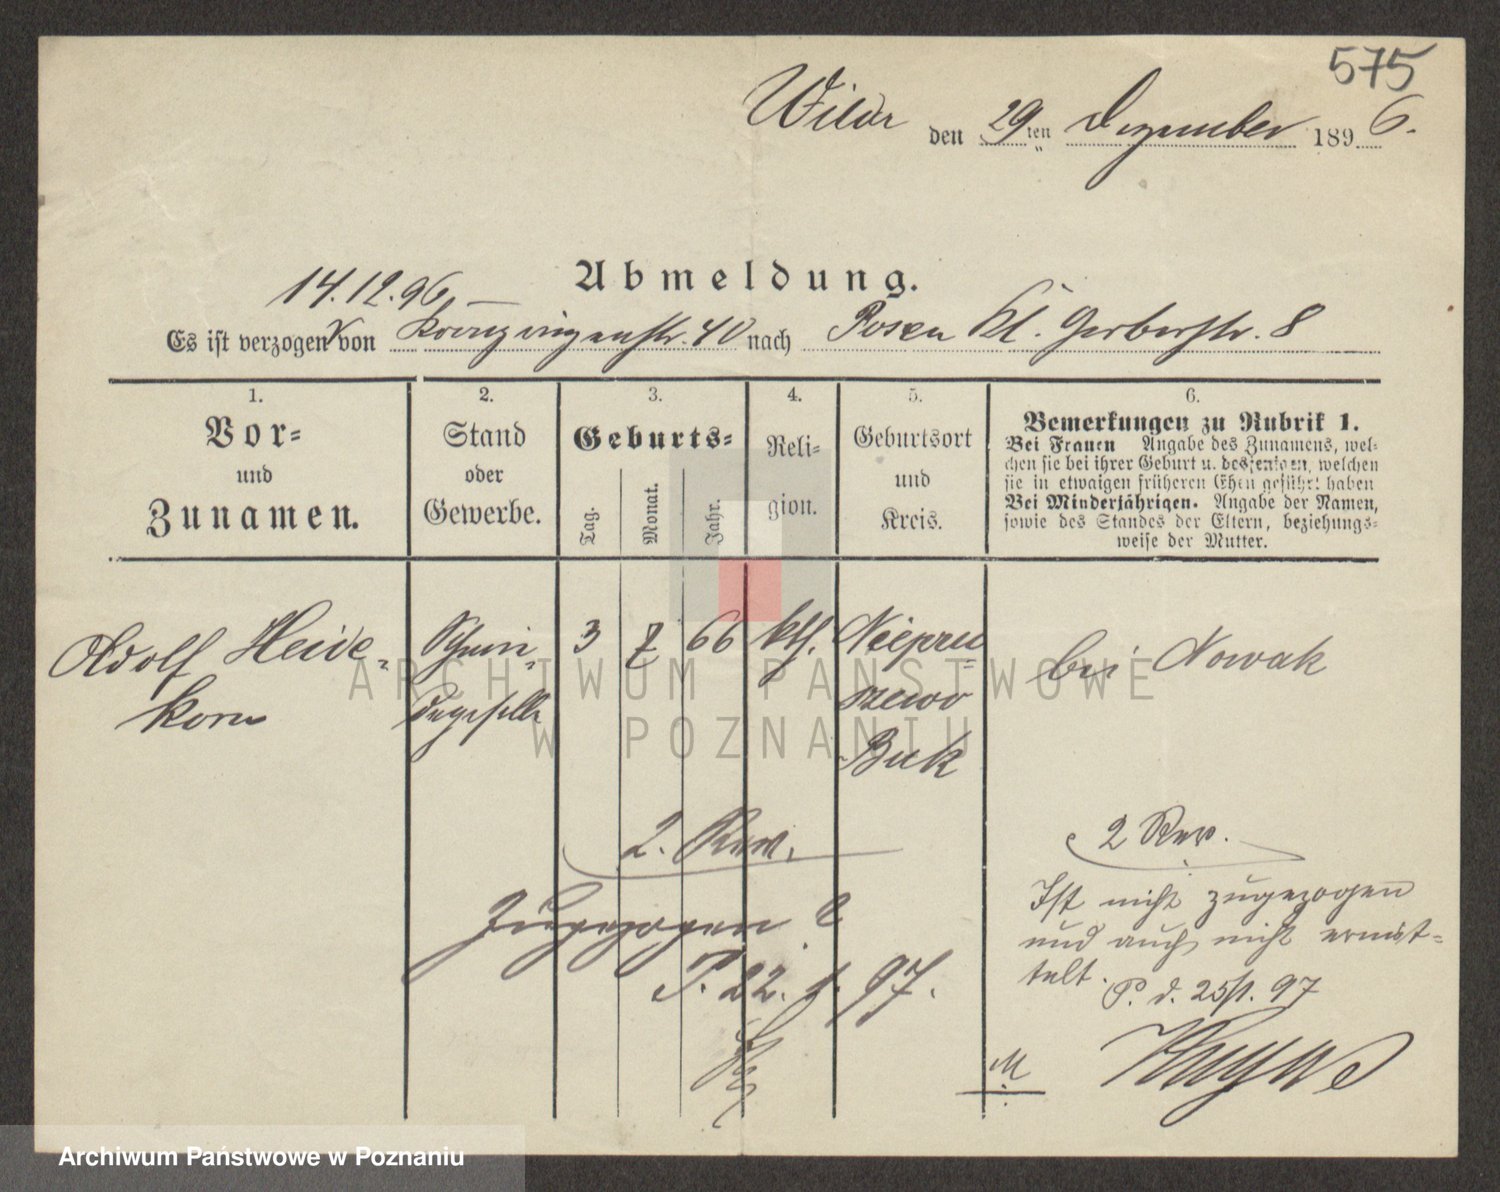 575
Wilda den 29ten Dezember 1896.
Abmeldung.
14.12.96
Es ist verzogen von Kronprinzenstr. 40 nach Posen Kl. Gerberstr. 8
1.
Vor-
und
Zunamen.
2.
Stand
oder
Gewerbe.
3.
Geburts-
Tag.
Monat.
Jahr.
4.
Reli-
gion.
5.
Geburtsort
und
Kreis.
6.
Bemerkungen zu Rubrik 1.
Bei Frauen Angabe des Zunamens, wel-
chen sie bei ihrer Geburt u. desjenigen, welchen
sie in etwaigen früheren Ehen geführt haben
Bei Minderjährigen. Angabe der Namen,
sowie des Standes der Eltern, beziehungs-
weise der Mutter.
Adolf Heide-
korn
Schmi-
degeselle
3
7
66
kth.
Niepru-
szewo
Buk
bei Nowak
2. Rev.
Zugezogen?
P. 22. 1. 97.
2 Rev.
Ist nicht zugezogen
und auch nicht ermit-
telt.
P. d. 25/1. 97
M
ARCHIWUM PAŃSTWOWE
W POZNANIU
Archiwum Państwowe w Poznaniu